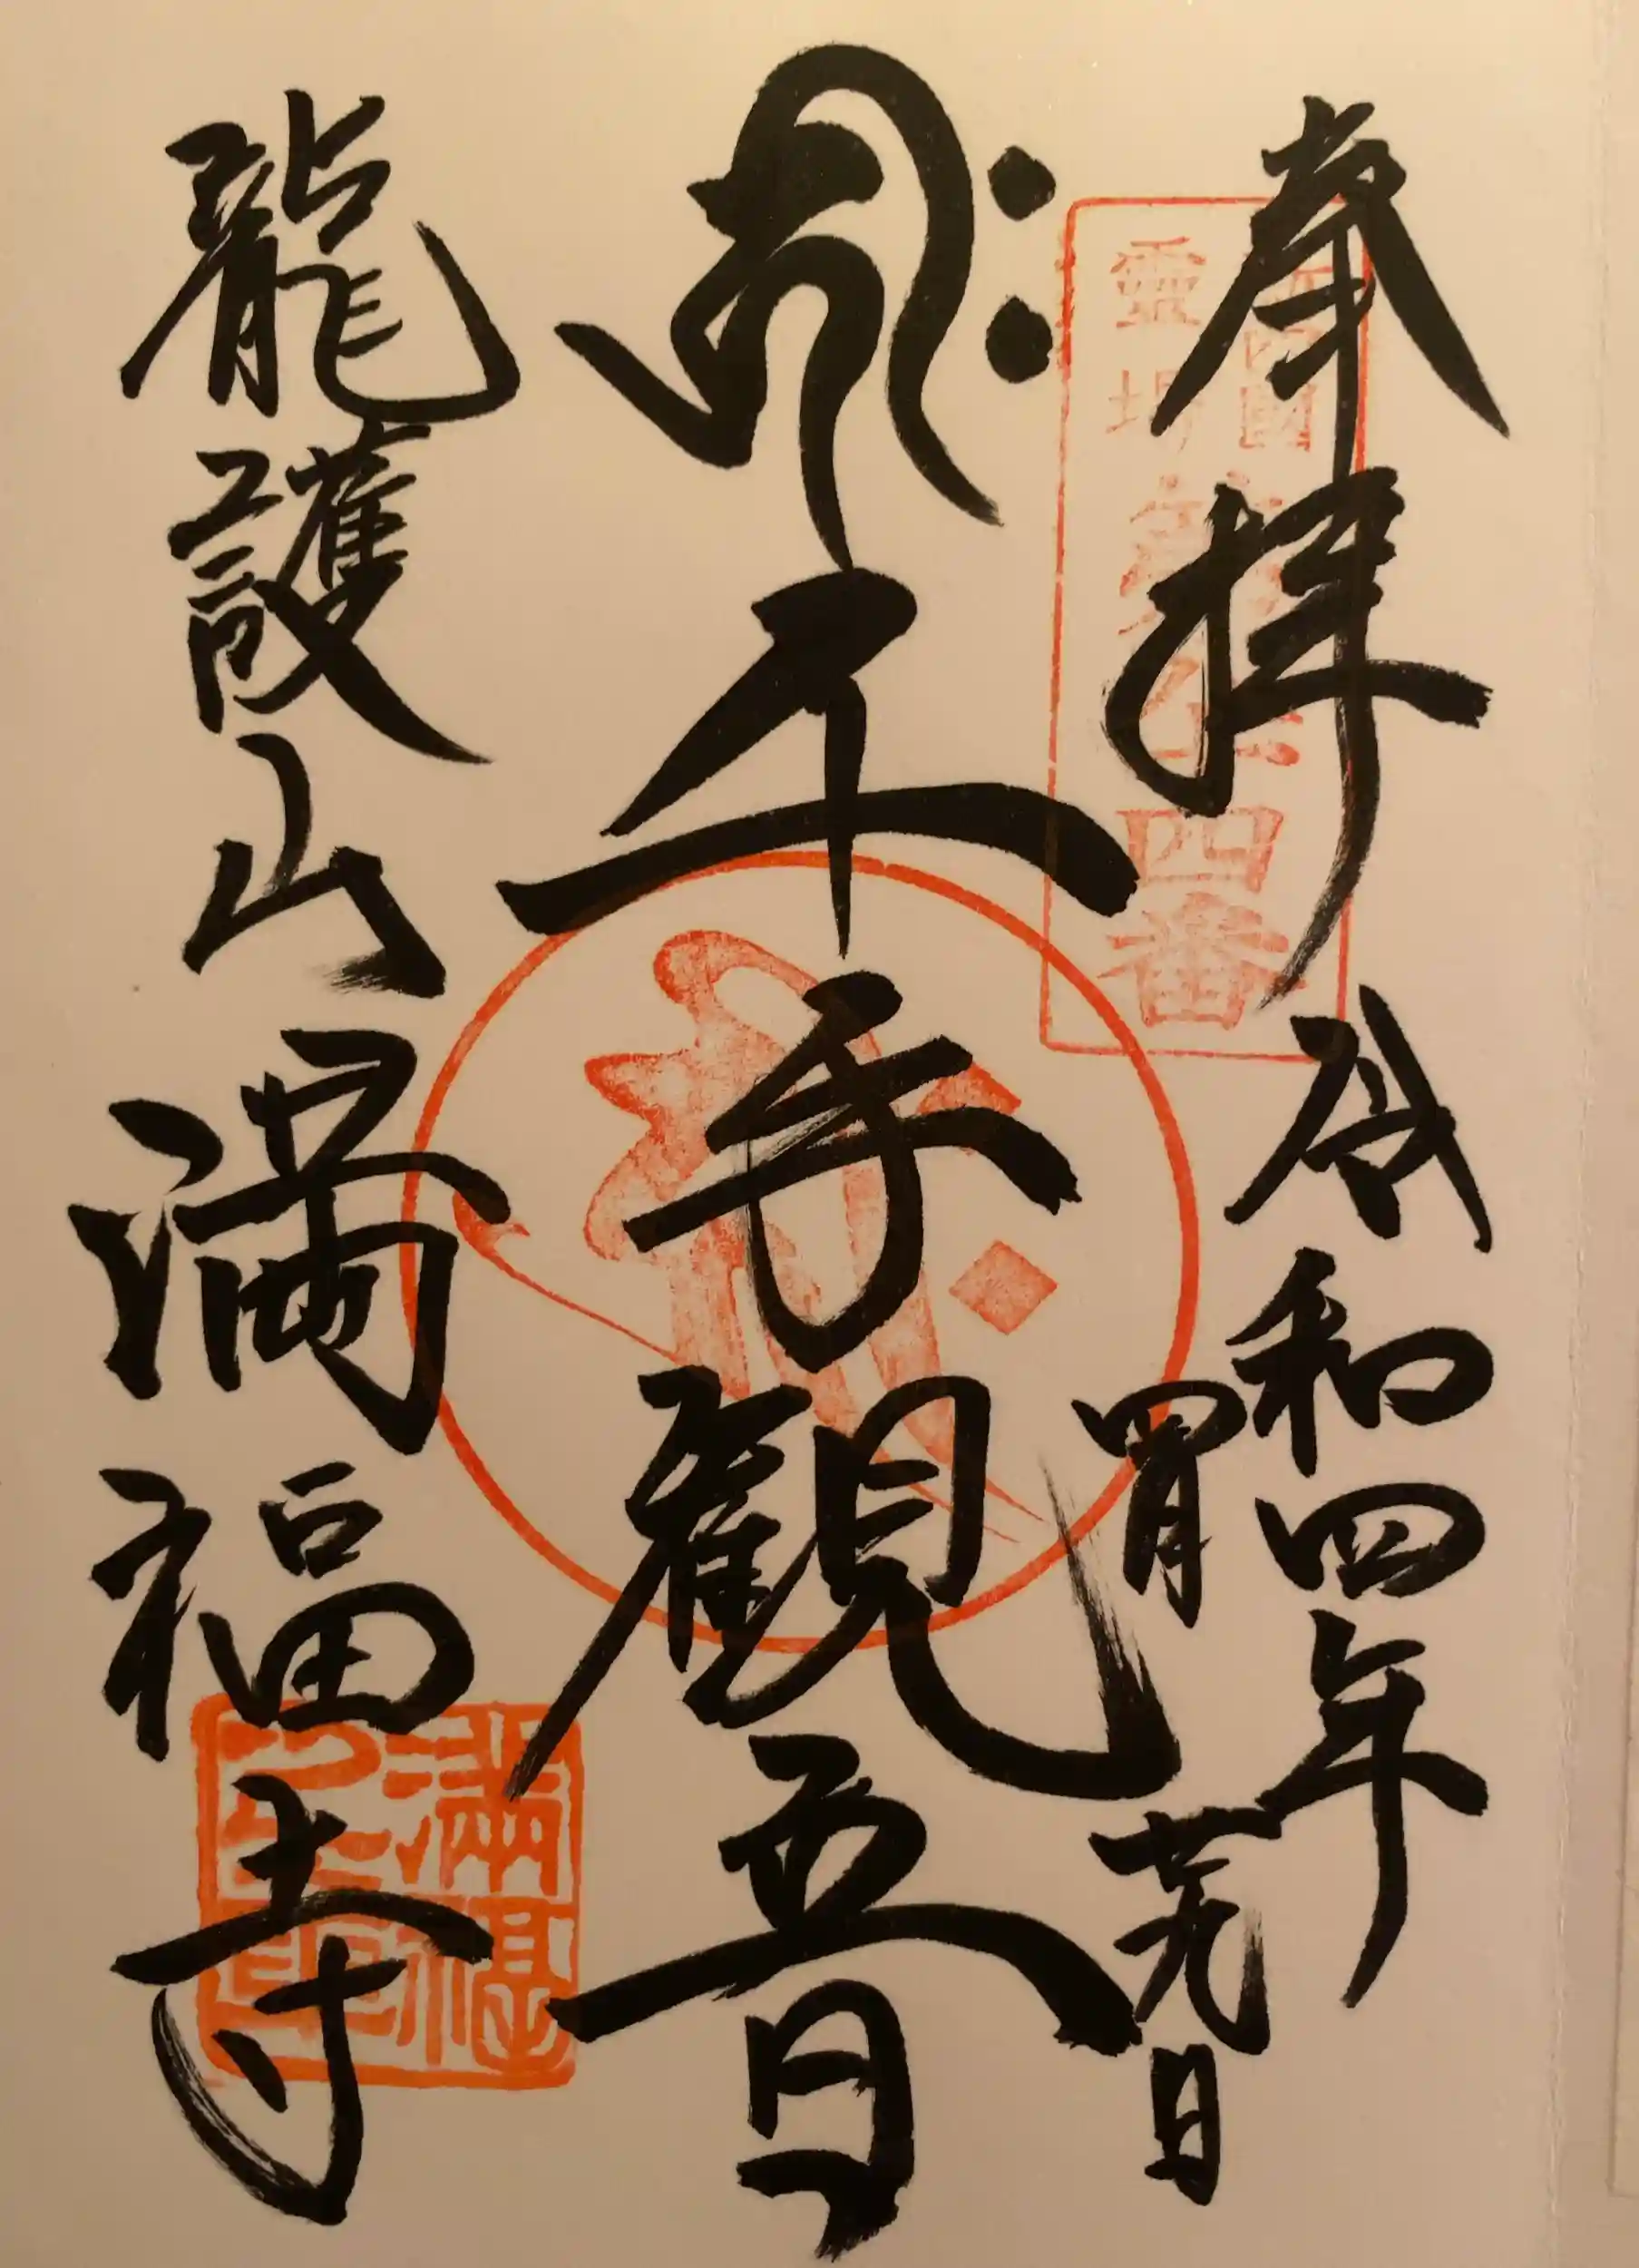 奉拝 令和四年
四月廿九日
靈場
四番
ह्रीः 千手観音
龍護山 満福寺